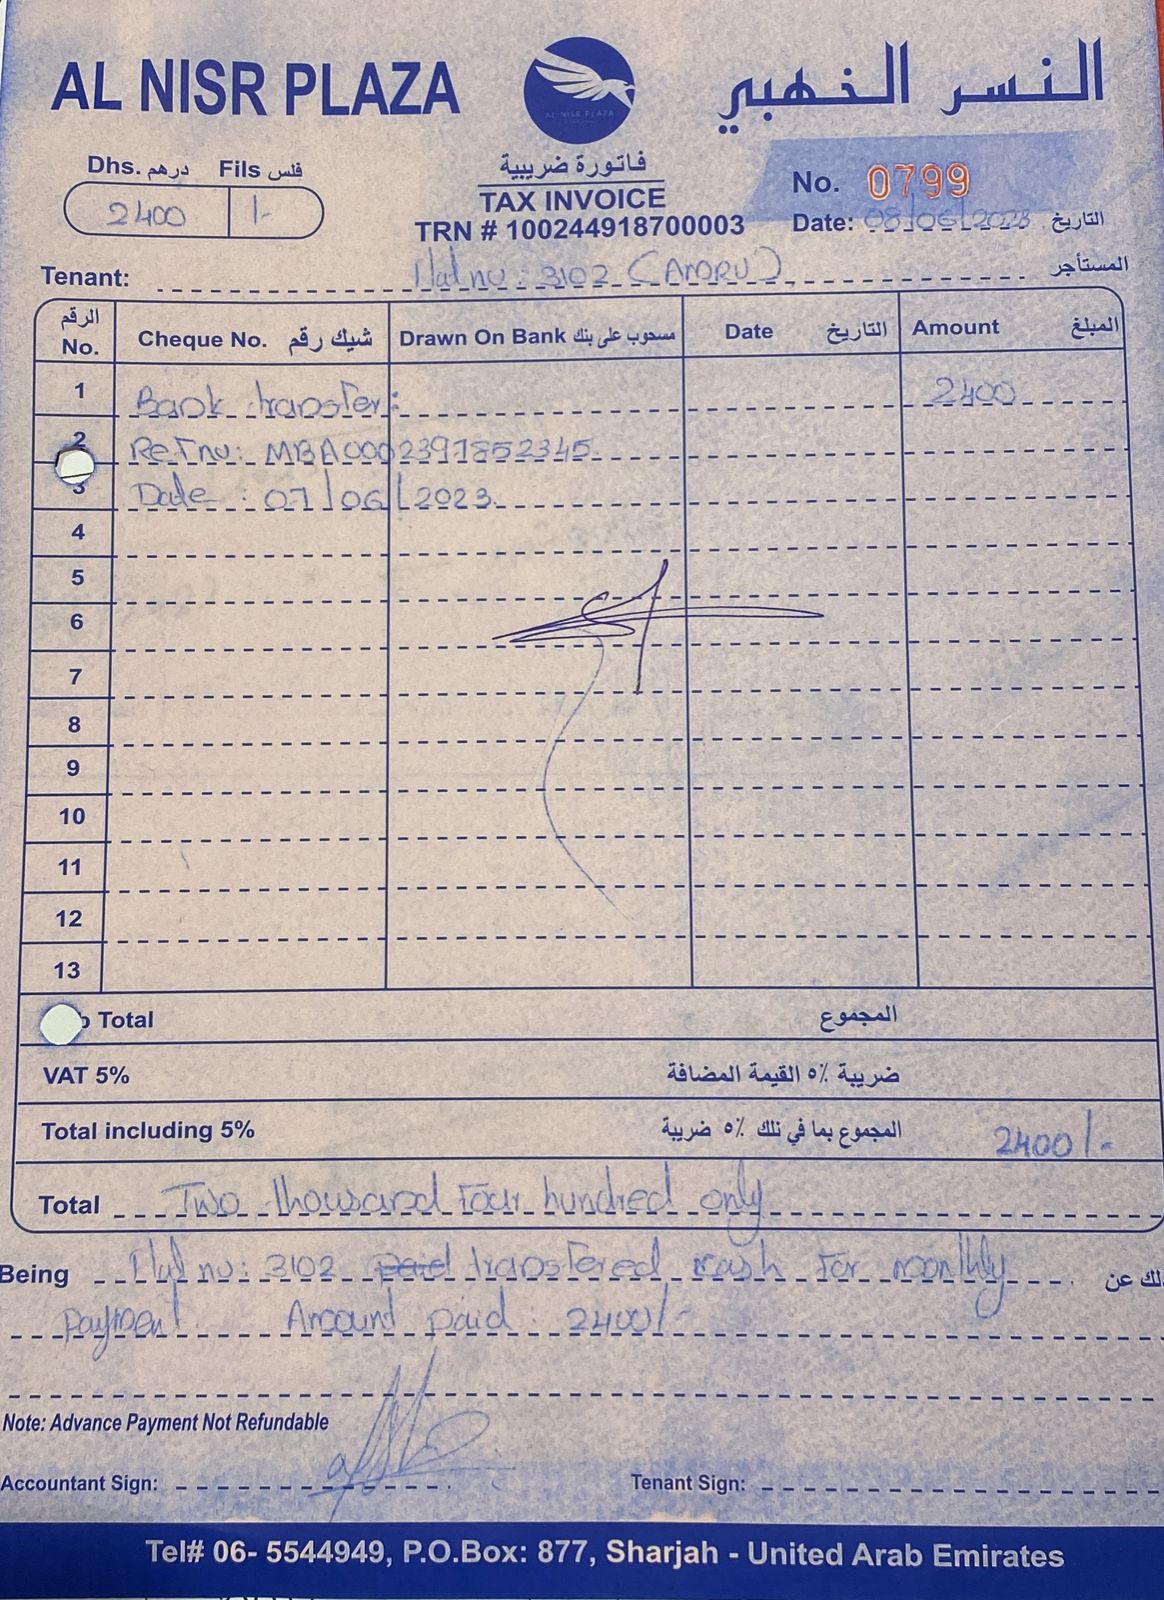 AL NISR PLAZA
النسر الخهبي
AL NISR PLAZA
Dhs. درهم Fils فلس
2400 /-
فاتورة ضريبية
TAX INVOICE
TRN # 100244918700003
No. 0799
Date: 08/06/2023 التاريخ
Tenant: Flat no: 3102 (AMRU) المستأجر
الرقم No. Cheque No. شيك رقم Drawn On Bank مسحوب على بنك Date التاريخ Amount المبلغ
1 Bank transfer: 2400
2 Ref no: MBA0002397852345
3 Date: 07/06/2023
4
5
6
7
8
9
10
11
12
13
Total المجموع
VAT 5% ضريبة ٥٪ القيمة المضافة
Total including 5% المجموع بما في نلك ٥٪ ضريبة 2400/-
Total Two thousand four hundred only
Being Flat no: 3102 paid transfered cash for monthly لك عن
Payment. Amount paid: 2400/-
Note: Advance Payment Not Refundable
Accountant Sign: Tenant Sign:
Tel# 06- 5544949, P.O.Box: 877, Sharjah - United Arab Emirates